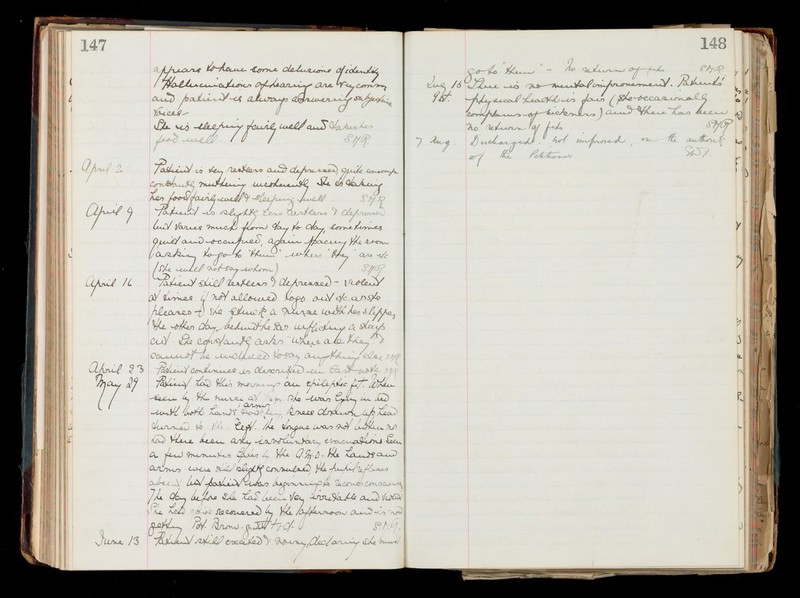 147
appears to have some delusions of identity
Hallucinations of hearing are very common
and patient is always answering subjective
voices -
She is sleeping fairly well and takes her
food well. S.M.R.
April 2 Patient is very restless and depressed, quite
constantly muttering incoherently. She is taking
her food fairly well & sleeping well. S.M.R
April 9 Patient is slightly less restless & depressed
but varies much from day to day, sometimes
quiet and occupied, again pacing the room
asking to go to "them" where "they" are etc
(she will not say whom) S.M.R
April 16 Patient still restless & depressed - violent
at times if not allowed to go out etc as she
pleases - she struck a nurse with her slipper
the other day, behind the ear inflicting a sharp
cut. She constantly asks "where are they" &
cannot be induced to say anything else SMR
April 23 Patient continues as described in last note SMR
May 29 Patient had this morning an epileptic fit. When
seen by the nurse at she was lying in bed
with both hands arms knees drawn up, head
turned to the left. The tongue was not bitten nor
had there been any involuntary evacuations. Seen
a few minutes later by the A.M.O. the hands and
arms were still slightly convulsed the pupil reflexes
absent but patient was beginning to become conscious
The day before she had been very irritable and violent
She had quite recovered by the afternoon and is now
getting Pot. Brom. S.M.R.
June 13 Patient still excited & noisy, declaring she must
148
go to "them" - No return of fits SMR
Aug 15 There is no mental improvement. Patient's
physical health is fair (she occasionally
complains of sickness) and there has been
no return of fits SMR
7 Aug Discharged, not improved, on the authority
of the Petitioner